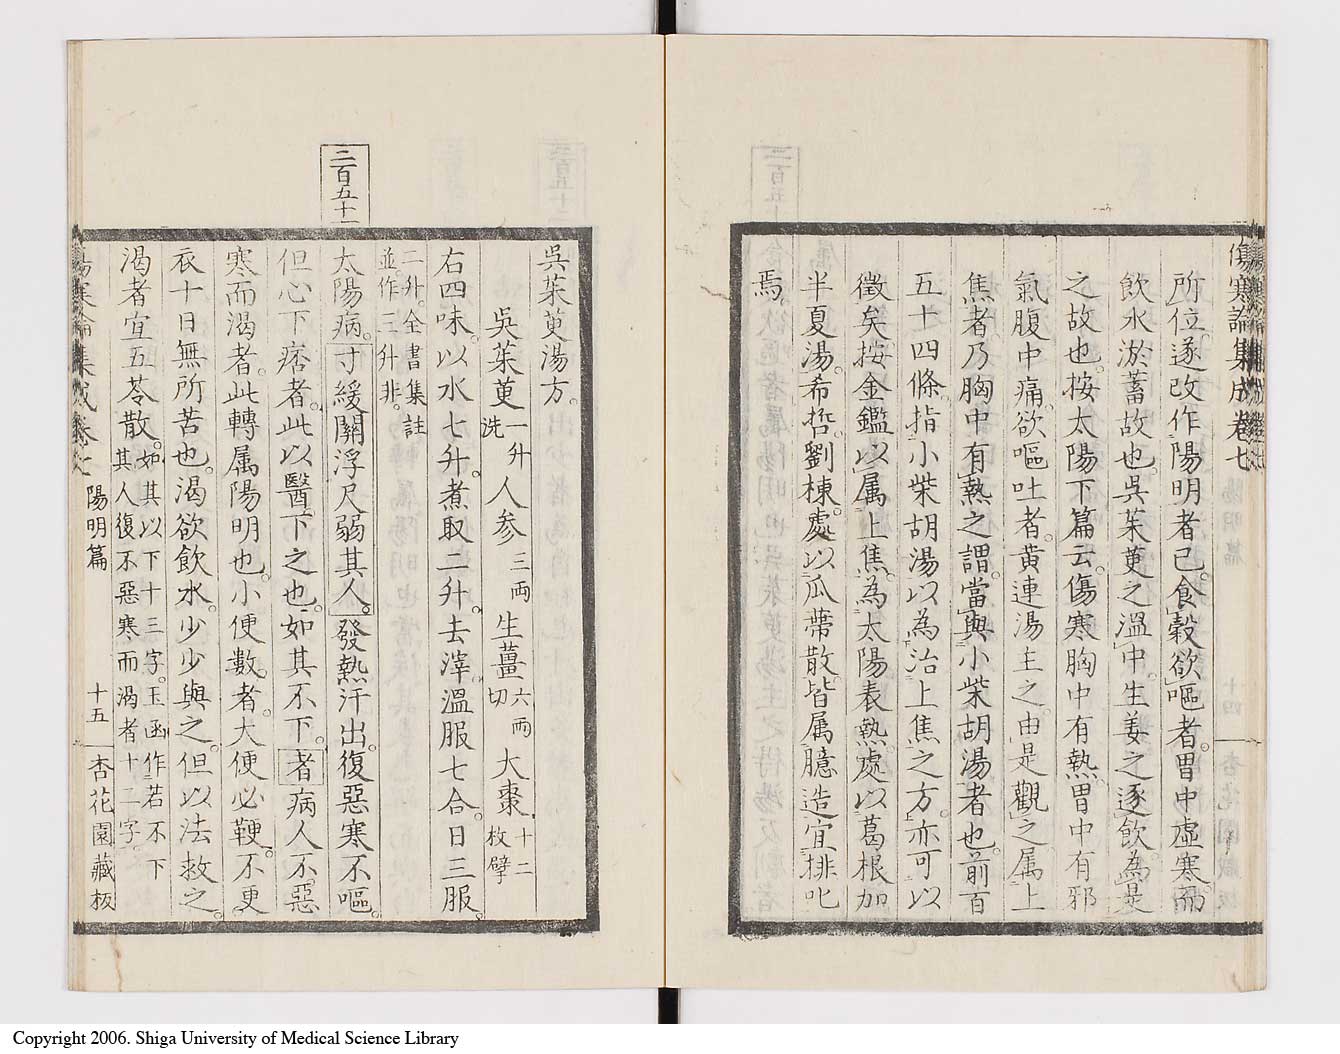 傷寒論集成卷七
所位。遂改作陽明者已。食穀欲嘔者。胃中虛寒。而
飲水淤蓄故也。吳茱萸之溫中。生姜之逐飲。為是
之故也。按太陽下篇云。傷寒胸中有熱。胃中有邪
氣腹中痛。欲嘔吐者。黃連湯主之。由是觀之。属上
焦者。乃胸中有熱之謂。當與小柴胡湯者也。前百
五十四條。指小柴胡湯以為治上焦之方。亦可以
徵矣。按金鑑以属上焦。為太陽表熱。處以葛根加
半夏湯。希哲。劉棟。處以瓜蔕散。皆属臆造。宜排叱
焉。
吳茱萸湯方。
吳茱萸一升洗 人参三両 生薑六両切 大棗十二枚擘
右四味。以水七升。煮取二升。去滓。溫服七合。日三服。
二升。全書集註並。作三升非。
二百五十一
太陽病。寸緩關浮尺弱其人。發熱汗出。復惡寒不嘔。
但心下痞者。此以醫下之也。如其不下。者病人不惡
寒而渴者。此轉属陽明也。小便數者。大便必鞕。不更
衣十日無所苦也。渴欲飲水。少少與之。但以法救之。
渴者宜五苓散。如其以下十三字。玉函作若不下其人復不惡寒而渴者十二字。
傷寒論集成卷七 陽明篇 十五 杏花園藏板
Copyright 2006. Shiga University of Medical Science Library